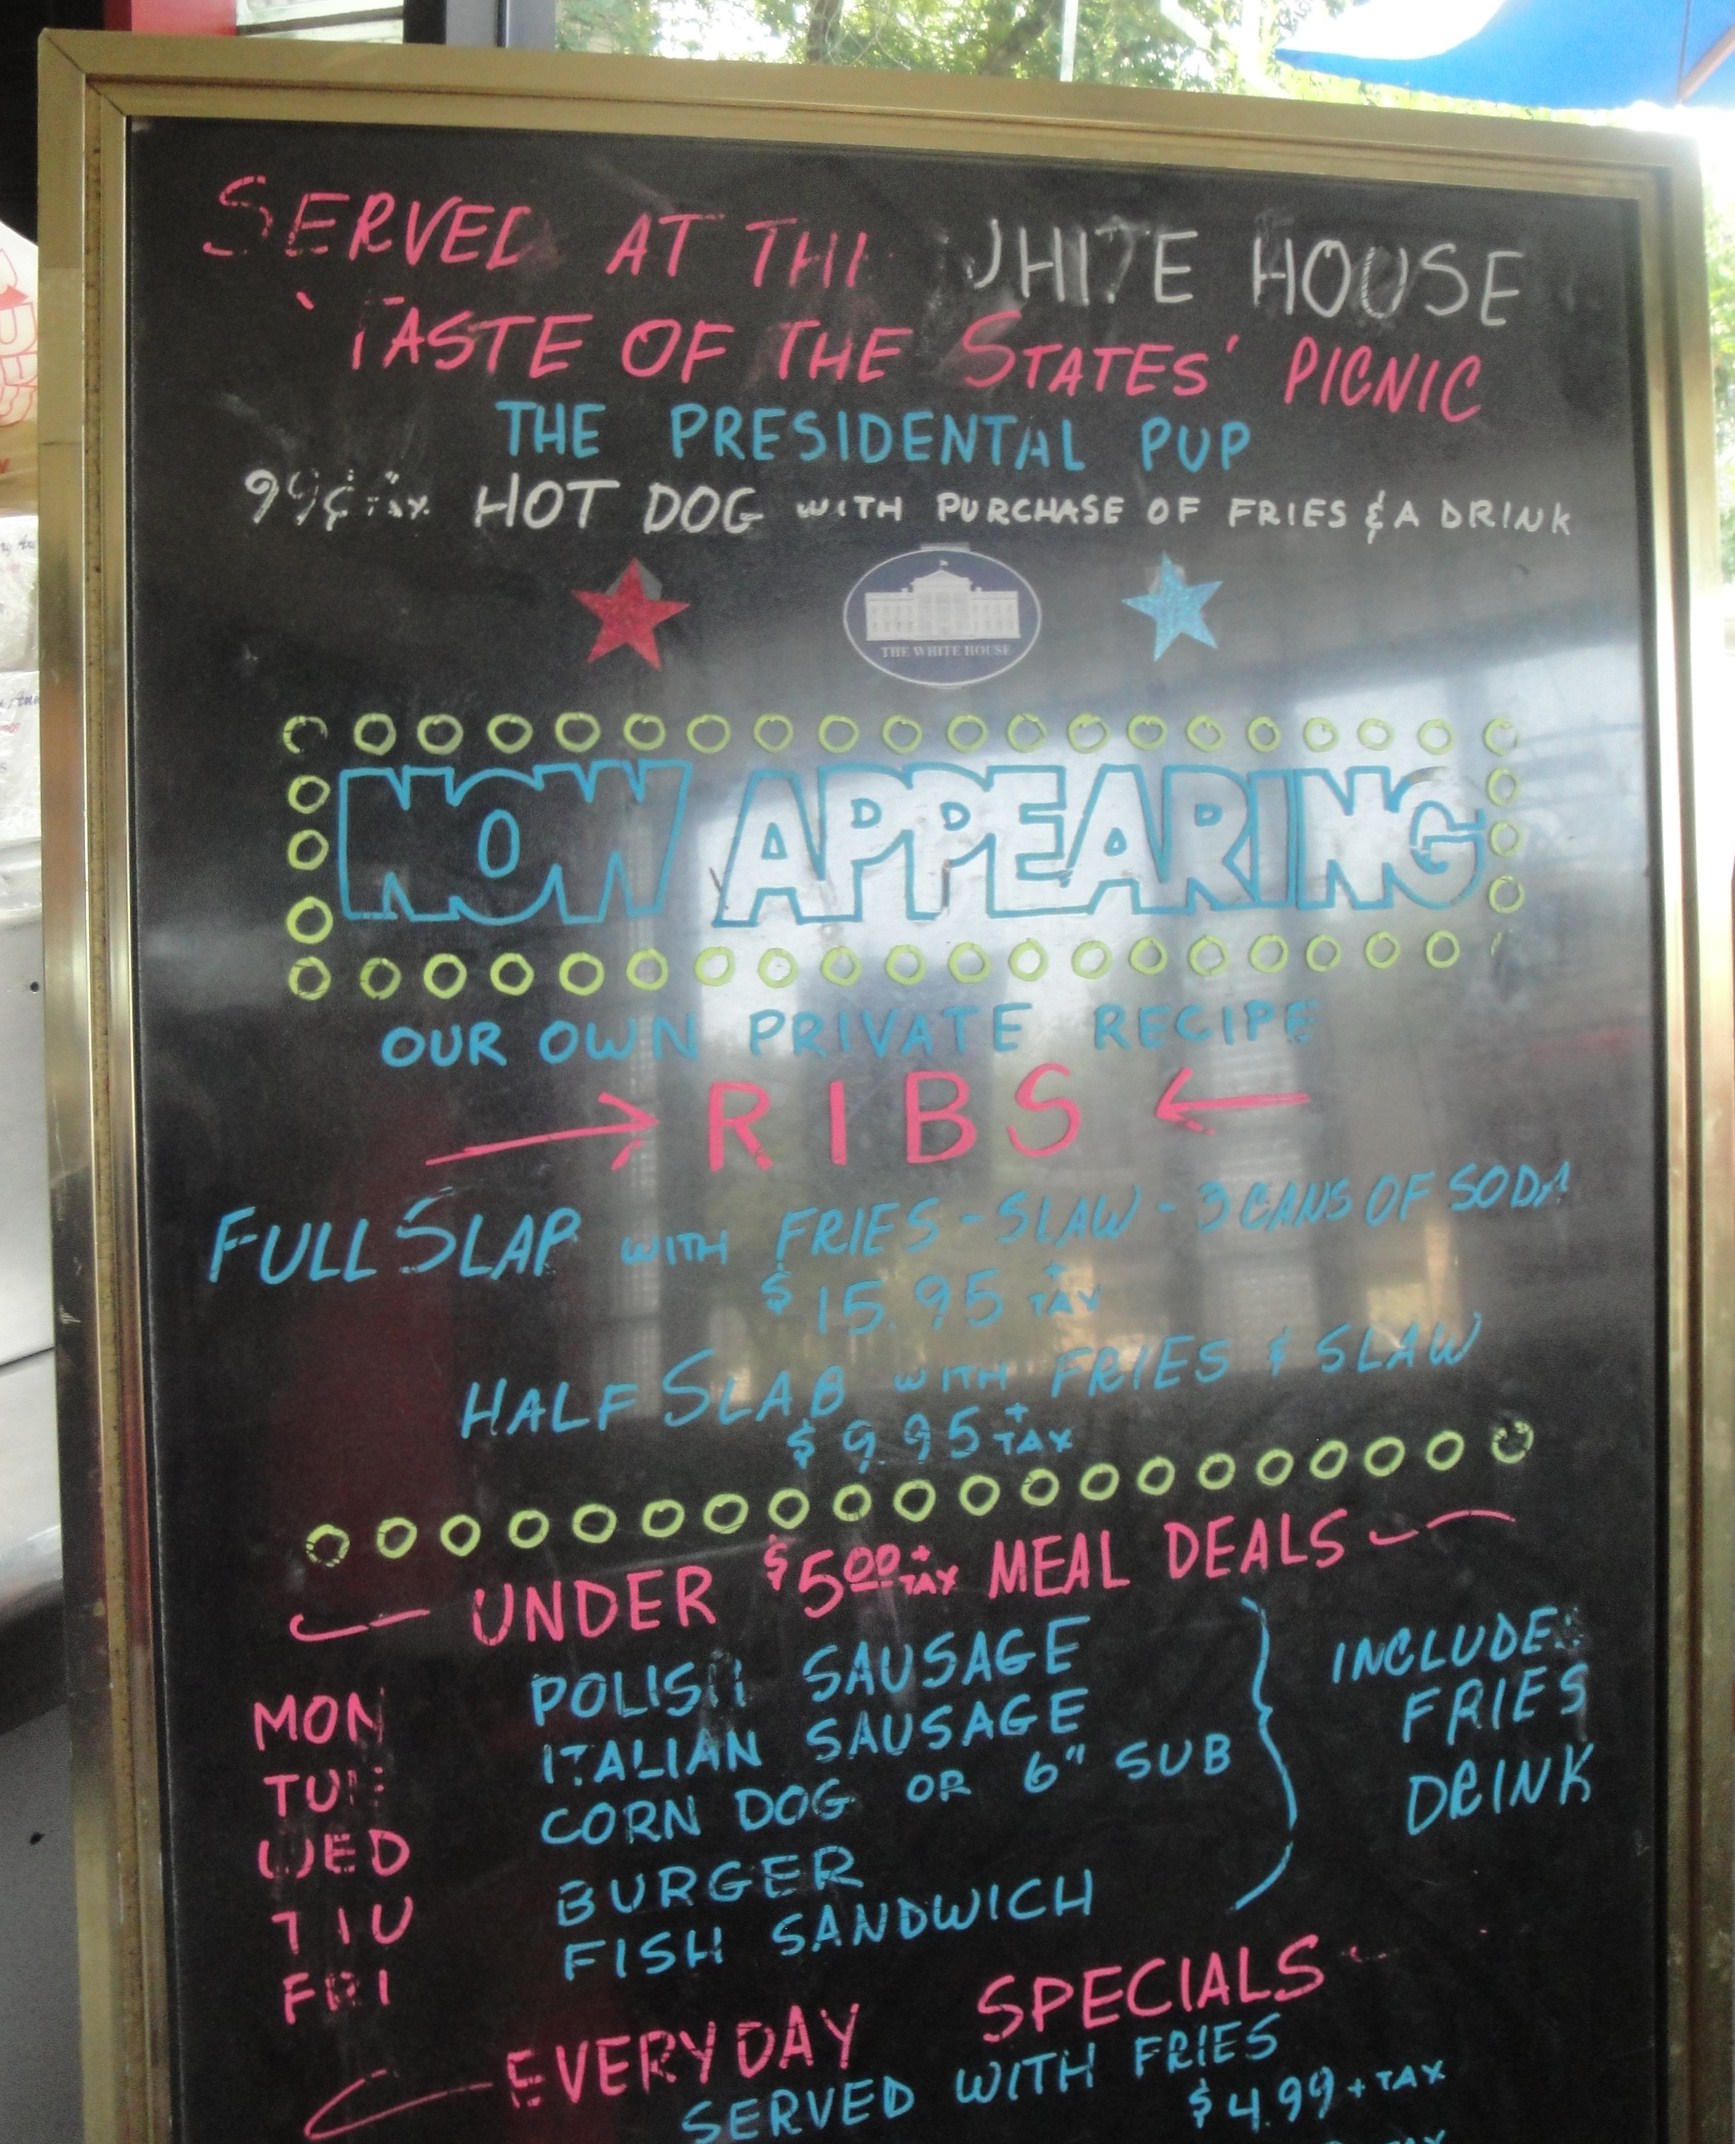 SERVED AT THE WHITE HOUSE
'TASTE OF THE STATES' PICNIC
THE PRESIDENTAL PUP
99¢ + TAX HOT DOG WITH PURCHASE OF FRIES & A DRINK
THE WHITE HOUSE
NOW APPEARING
OUR OWN PRIVATE RECIPE
→ RIBS ←
FULL SLAP WITH FRIES - SLAW - 3 CANS OF SODA
$15.95 + TAX
HALF SLAB WITH FRIES & SLAW
$9.95 + TAX
UNDER $5.00 + TAX MEAL DEALS
MON POLISH SAUSAGE
TUE ITALIAN SAUSAGE
WED CORN DOG OR 6" SUB
THU BURGER
FRI FISH SANDWICH
INCLUDES
FRIES
DRINK
EVERYDAY SPECIALS
SERVED WITH FRIES
$4.99 + TAX